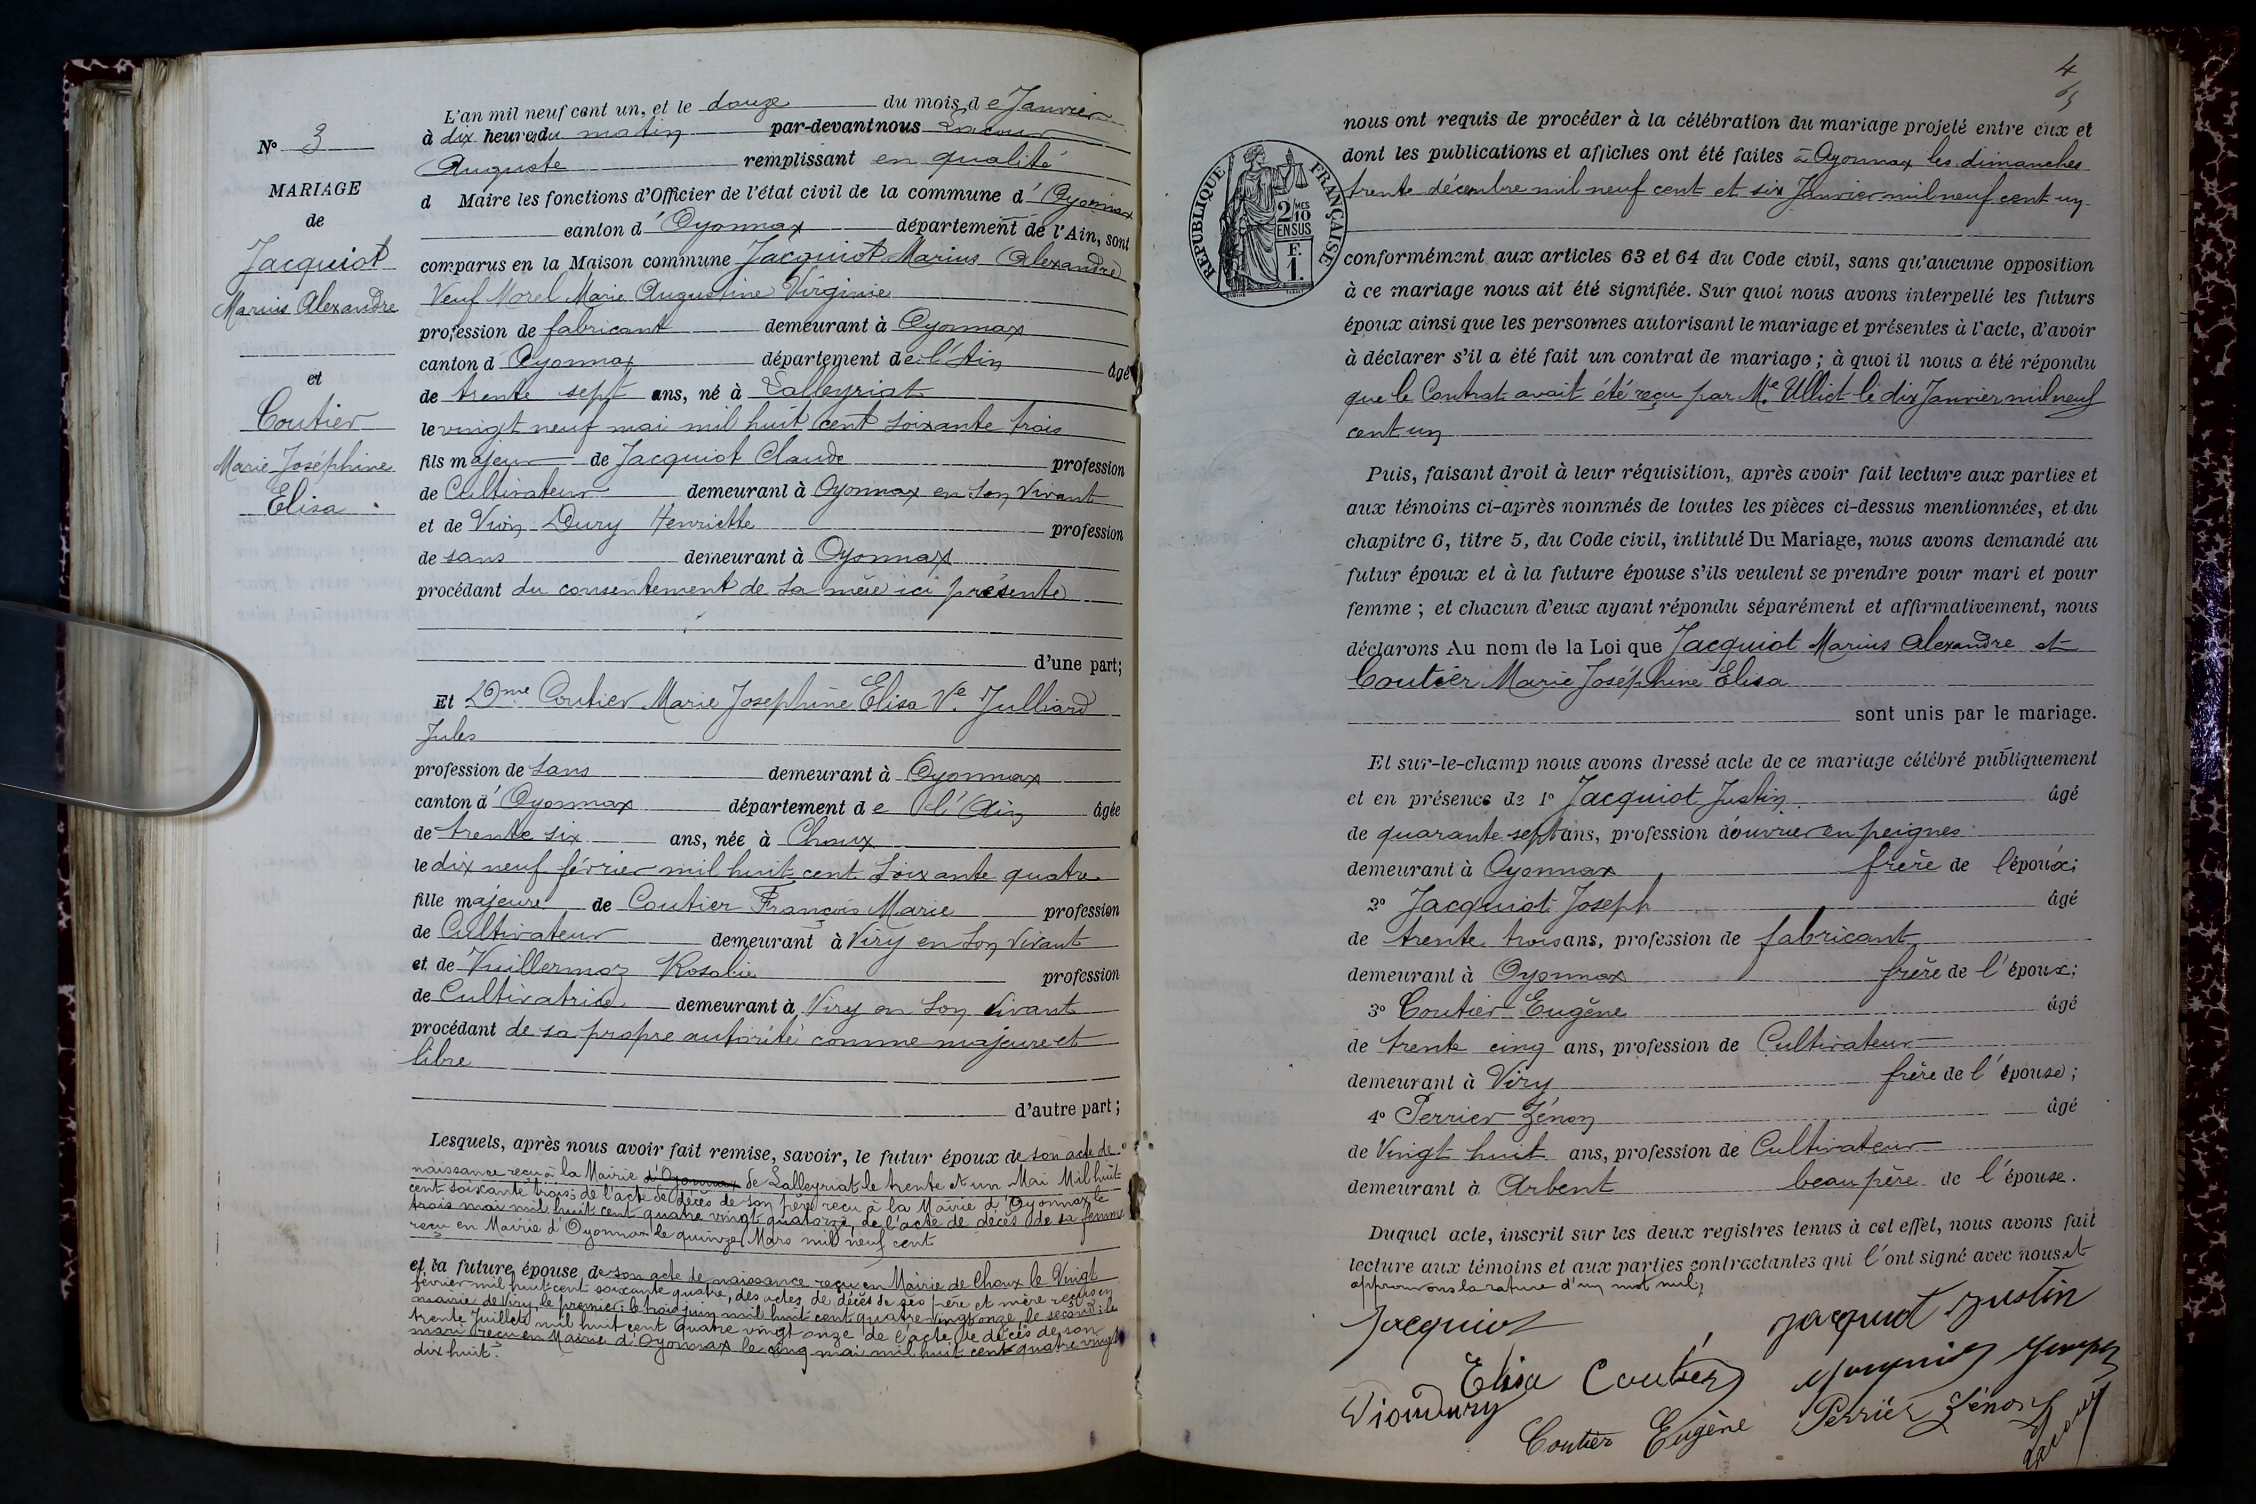 N° 3
MARIAGE
de
Jacquiot
Marius Alexandre
et
Coutier
Marie Joséphine
Elisa
L'an mil neuf cent un, et le douze du mois de Janvier
à dix heures du matin par-devant nous
Auguste remplissant en qualité
d Maire les fonctions d'Officier de l'état civil de la commune d'Oyonnax
canton d'Oyonnax département de l'Ain, sont
comparus en la Maison commune Jacquiot Marius Alexandre
Veuf Morel Marie Augustine Virginie
profession de fabricant demeurant à Oyonnax
canton d'Oyonnax département de l'Ain âgé
de trente sept ans, né à Lalleyriat
le vingt neuf mai mil huit cent soixante trois
fils majeur de Jacquiot Claude profession
de Cultivateur demeurant à Oyonnax en son vivant
et de Vion Dury Henriette profession
de sans demeurant à Oyonnax
procédant du consentement de sa mère ici présente
d'une part;
Et Dme Coutier Marie Josephine Elisa Ve Julliard
Jules
profession de sans demeurant à Oyonnax
canton d'Oyonnax département de l'Ain âgée
de trente six ans, née à Choux
le dix neuf février mil huit cent soixante quatre
fille majeure de Coutier François Marie profession
de Cultivateur demeurant à Viry en son vivant
et de Vuillermoz Rosalie profession
de Cultivatrice demeurant à Viry en son vivant
procédant de sa propre autorité comme majeure et
libre
d'autre part;
Lesquels, après nous avoir fait remise, savoir, le futur époux de son acte de
naissance reçu à la Mairie d'Oyonnax de Lalleyriat le trente et un Mai Mil huit
cent soixante trois; de l'acte de décès de son père reçu à la Mairie d'Oyonnax le
trois mai mil huit cent quatre vingt quatorze, de l'acte de décès de sa femme
reçu en Mairie d'Oyonnax le quinze Mars mil neuf cent
et la future épouse de son acte de naissance reçu en Mairie de Choux le Vingt
février mil huit cent soixante quatre, des actes de décès de ses père et mère reçus en
mairie de Viry, le premier: le trois juin mil huit cent quatre vingt onze, le second: le
trente Juillet mil huit cent quatre vingt onze de l'acte de décès de son
mari reçu en Mairie d'Oyonnax le cinq mai mil huit cent quatre vingt
dix huit.
4
nous ont requis de procéder à la célébration du mariage projeté entre eux et
dont les publications et affiches ont été faites à Oyonnax les dimanches
trente décembre mil neuf cent et six Janvier mil neuf cent un
RÉPUBLIQUE FRANÇAISE
2/10 MES
EN SUS
F.
1.
conformément aux articles 63 et 64 du Code civil, sans qu'aucune opposition
à ce mariage nous ait été signifiée. Sur quoi nous avons interpellé les futurs
époux ainsi que les personnes autorisant le mariage et présentes à l'acte, d'avoir
à déclarer s'il a été fait un contrat de mariage; à quoi il nous a été répondu
que le Contrat avait été reçu par Me Ulliet le dix Janvier mil neuf
cent un
Puis, faisant droit à leur réquisition, après avoir fait lecture aux parties et
aux témoins ci-après nommés de toutes les pièces ci-dessus mentionnées, et du
chapitre 6, titre 5, du Code civil, intitulé Du Mariage, nous avons demandé au
futur époux et à la future épouse s'ils veulent se prendre pour mari et pour
femme; et chacun d'eux ayant répondu séparément et affirmativement, nous
déclarons Au nom de la Loi que Jacquiot Marius Alexandre et
Coutier Marie Joséphine Elisa
sont unis par le mariage.
Et sur-le-champ nous avons dressé acte de ce mariage célébré publiquement
et en présence de 1° Jacquiot Justin âgé
de quarante sept ans, profession d'ouvrier en peignes
demeurant à Oyonnax frère de l'époux;
2° Jacquiot Joseph âgé
de trente trois ans, profession de fabricant
demeurant à Oyonnax frère de l'époux;
3° Coutier Eugène âgé
de trente cinq ans, profession de Cultivateur
demeurant à Viry frère de l'épouse;
4° Perrier Zénon âgé
de Vingt huit ans, profession de Cultivateur
demeurant à Arbent beau père de l'épouse.
Duquel acte, inscrit sur les deux registres tenus à cet effet, nous avons fait
lecture aux témoins et aux parties contractantes qui l'ont signé avec nous et
approuvons la rature d'un mot nul,
Jacquiot Jacquiot Justin
Elisa Coutier
Viondury Perrier Zénon
Coutier Eugène